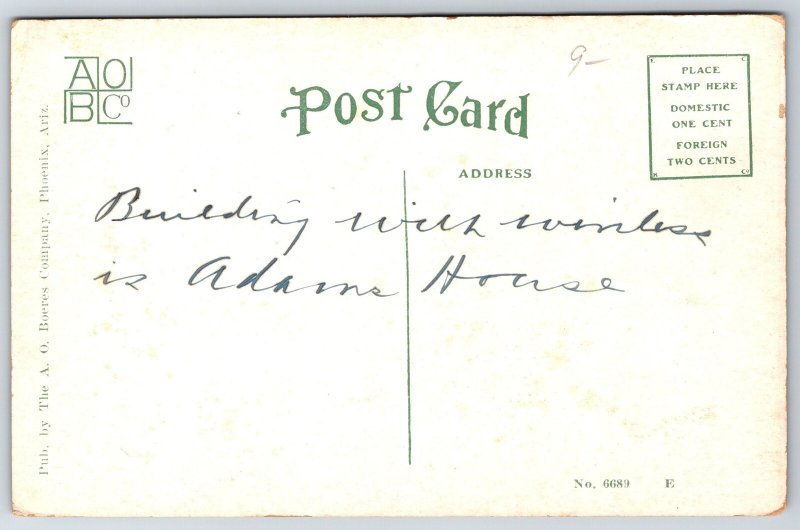 AO
BCo
Post Card
9-
PLACE
STAMP HERE
DOMESTIC
ONE CENT
FOREIGN
TWO CENTS
ADDRESS
Building with wireless
is Adams House
Pub. by The A. O. Boeres Company, Phoenix, Ariz.
No. 6689 E